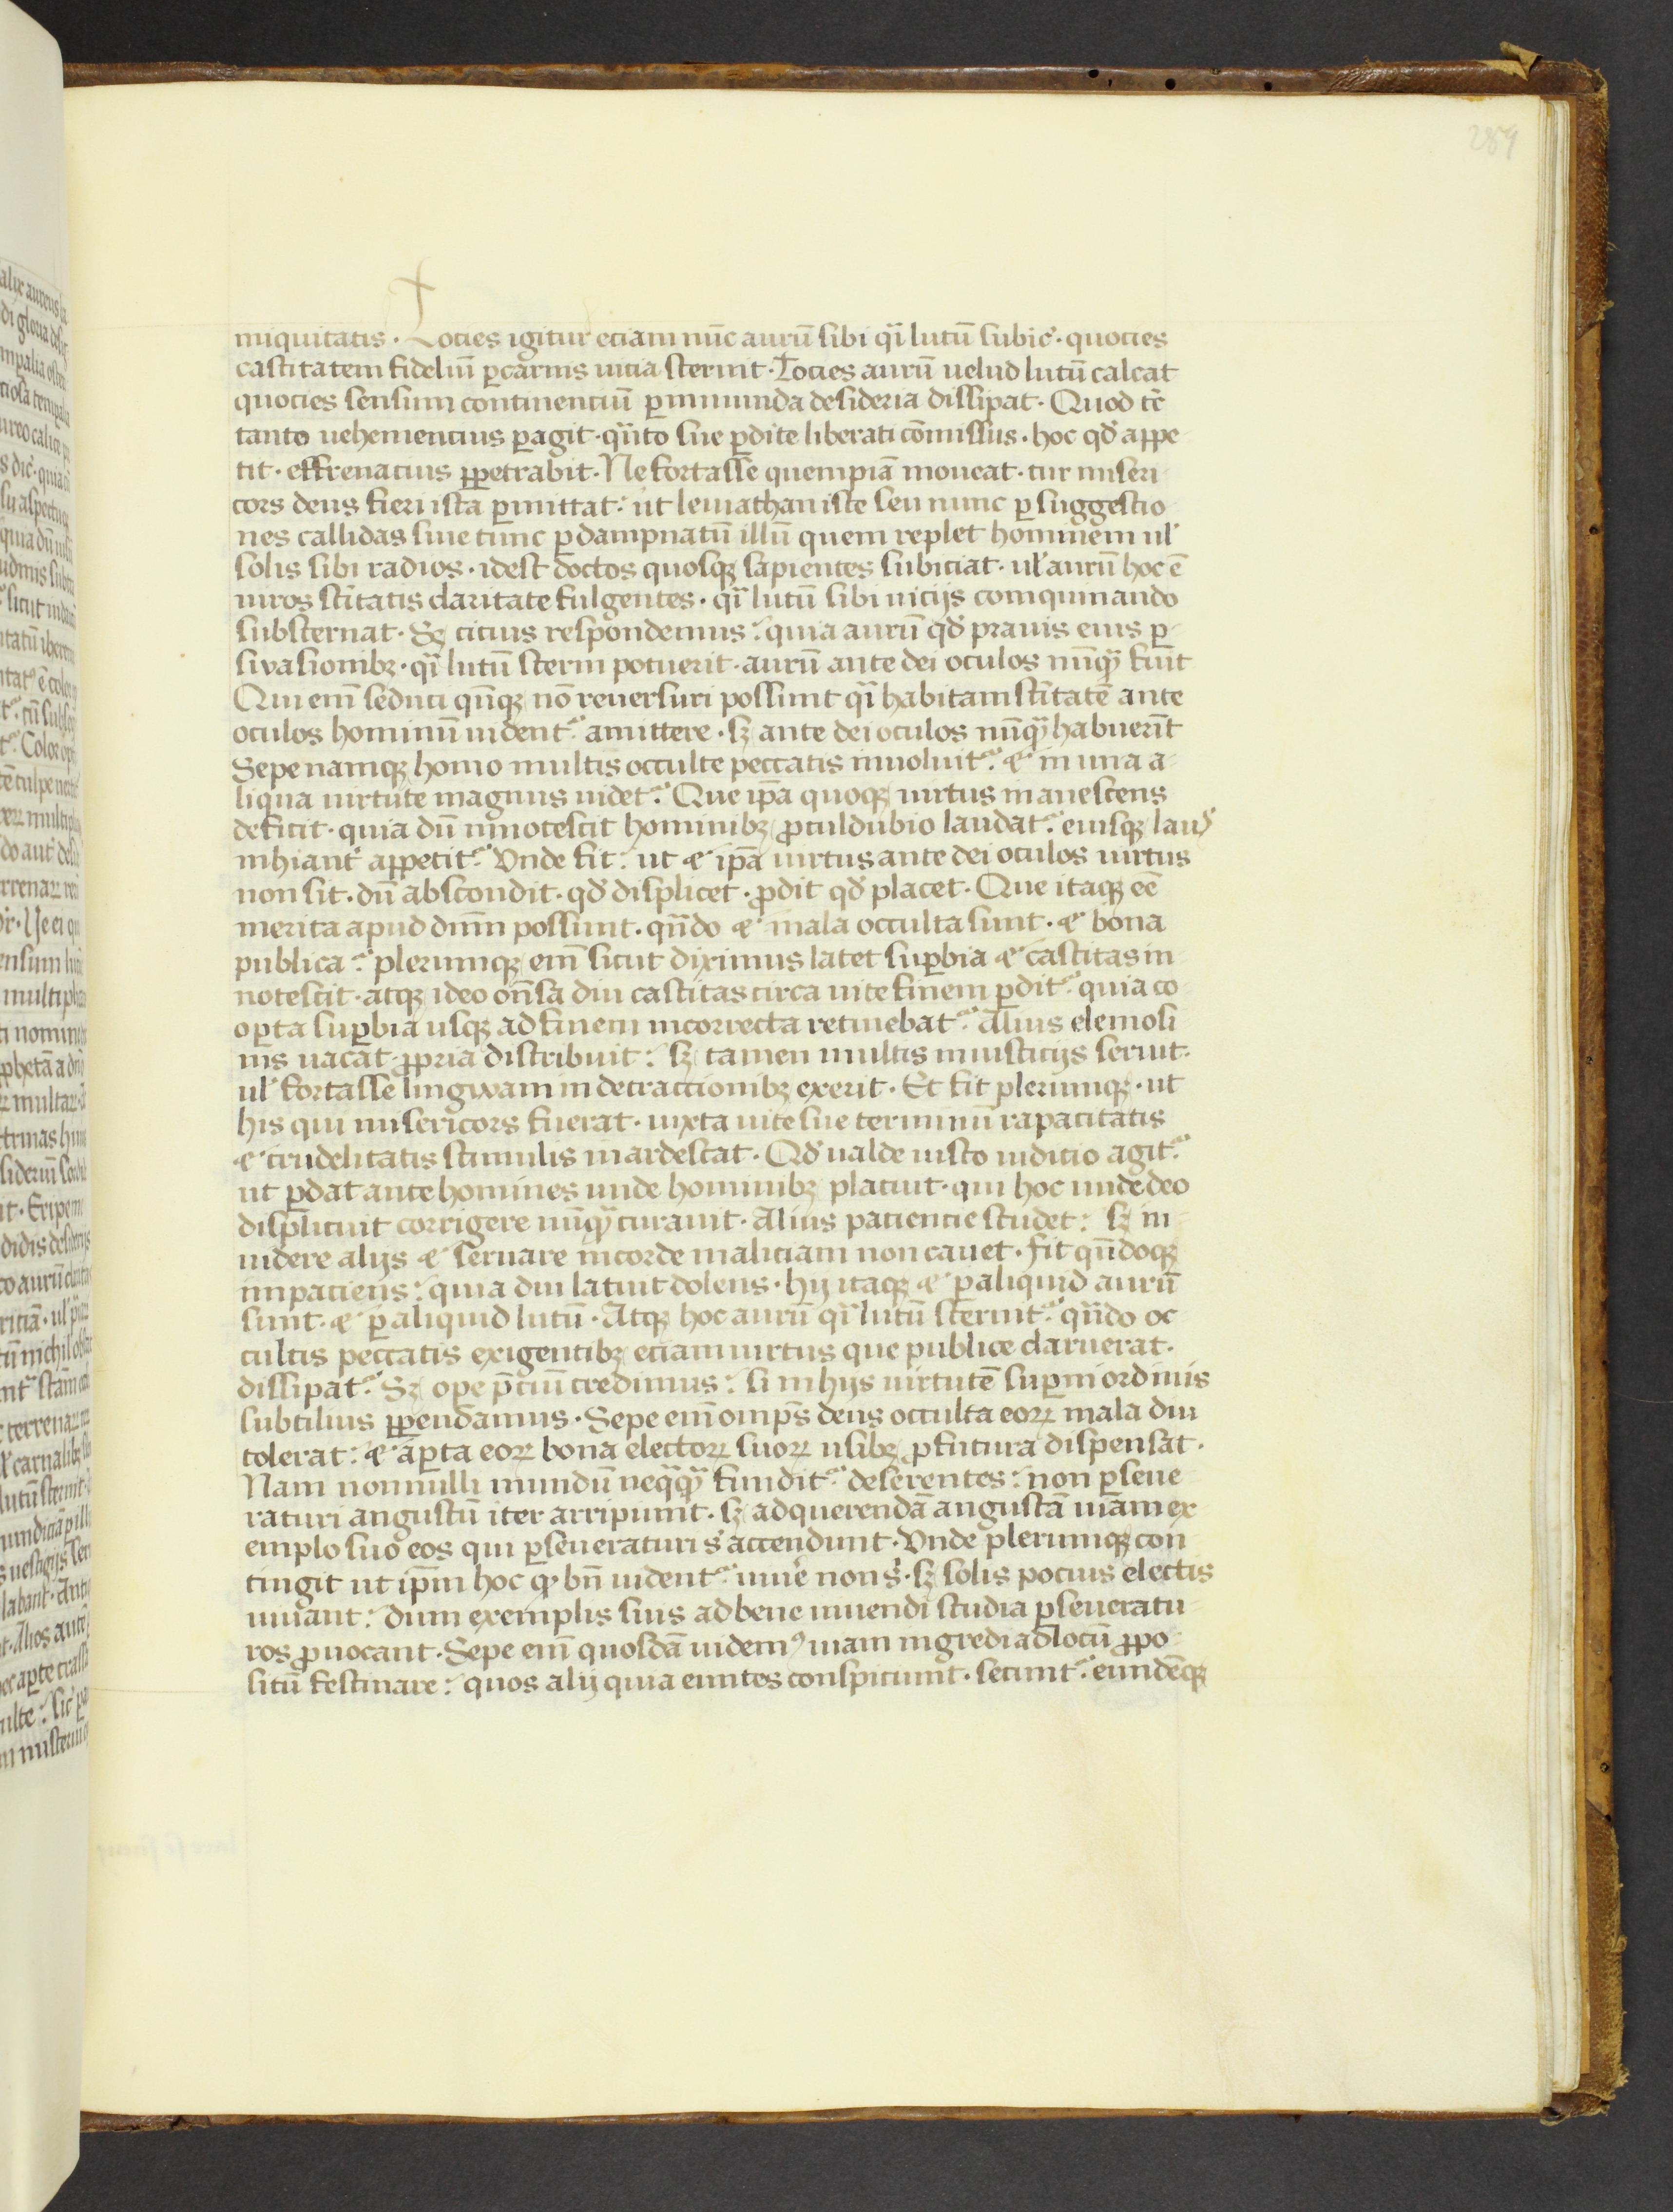 289
iniquitatis · Tocies igitur eciam nūc aurū sibi qͣi lutū subic̄ · quocies
castitatem fideliū ꝑ carnis uicia sternit · Tocies aurū uelud lutū calcat
quocies sensum continenciū ꝑ inmunda desideria dissipat · Quod tē
tanto uehemencius ꝑagit · qͣnto sue ꝑdite liberati cōmissus · hoc qd̛ appe
tit · effrenacius ꝑpetrabit · Ne fortasse quempiā moueat · cur miseri
cors deus fieri ista ꝑmittat : ut leuiathan iste seu nunc ꝑ suggestio
nes callidas siue tunc ꝑ dampnatū illū quem replet hominem ul̛
solis sibi radios · idest doctos quosqꝫ sapientes subiciat · ul̛ aurū hoc ē
uiros sc̄itatis claritate fulgentes · qͣi lutū sibi uicijs coinquinando
substernat · Sꝫ cicius respondemus : quia aurū qd̛ prauis eius ꝑ
suasionibꝫ · qͣi lutū sterni potuerit · aurū ante dei oculos nūqͣ fuit
Qui eni̅ seduci qn̄qꝫ nō reuersuri possunt qͣi habitam sc̄itatē ante
oculos hominū uident᷑ amittere · sꝫ ante dei oculos nūqͣ habuerūt
Sepe namqꝫ homo multis occulte peccatis inuoluit᷑ : & in una a
liqua uirtute magnus uidet᷑ · Que ip̄a quoqꝫ uirtus inanescens
deficit · quia dū innotescit hominibꝫ ꝓculdubio laudat᷑ eiusqꝫ laus
inhiant̛ appetit᷑ · Vnde fit : ut & ip̄a uirtus ante dei oculos uirtus
non sit · dū abscondit · qd̛ displicet · ꝓdit qd̛ placet · Que itaqꝫ eē
merita apud dn̄m possunt · qn̄do & mala occulta sunt · & bona
publica : plerumqꝫ eni̅ sicut diximus latet suꝑbia & castitas in
notescit · atqꝫ ideo on̄sa diu castitas circa uite finem ꝑdit᷑ · quia co
oꝑta suꝑbia usqꝫ ad finem incorrecta retinebat᷑ · Alius elemosi
nis uacat ꝓpria distribuit : sꝫ tamen multis iniusticijs seruit ·
ul̛ fortasse lingwam in detraccionibꝫ exerit · Et fit plerumqꝫ · ut
his qui misericors fuerat · iuxta uite sue terminū rapacitatis
& crudelitatis stimulis inardescat · Qd̛ ualde iusto iudicio agit᷑
ut ꝑdat ante homines unde hominibꝫ placuit · qui hoc unde deo
displicuit corrigere nūqͣ curauit · Alius paciencie studet : sꝫ in
uidere alijs & seruare in corde maliciam non cauet · fit qn̄doqꝫ
inpaciens : quia diu latuit dolens · hij itaqꝫ & ꝑ aliquid aurū
sunt · & ꝑ aliquid lutū · Atqꝫ hoc aurū qͣi lutū sternit᷑ · qn̄do oc
cultis peccatis exigentibꝫ eciam uirtus que publice claruerat ·
dissipat᷑ · Sꝫ ope p̄ciū credimus : si in hijs uirtutē suꝑni ordinis
subtilius ꝑpendamus · Sepe eni̅ omp̄s deus occulta eoꝝ mala diu
tolerat : & aꝑta eoꝝ bona electoꝝ suoꝝ usibꝫ ꝓfutura dispensat ·
Nam nonnulli mundū neqͣqͣ fundit᷑ deserentes : non ꝑseue
raturi angustū iter arripiunt · sꝫ ad querendā angustā uiam ex
emplo suo eos qui ꝑseueraturi s̄ accendunt · Vnde plerumqꝫ con
tingit ut ip̄m hoc qͦ bn̄ uident᷑ uiue̅ non s̄ · sꝫ solis pocius electis
uiuant : dum exemplis suis ad bene uiuendi studia ꝑseueratu
ros ꝓuocant · Sepe eni̅ quosdā uidemꝰ uiam ingredi ad locū ꝓpo
situ̅ festinare : quos alij quia euntes conspiciunt · secunt᷑ · eundēqꝫ